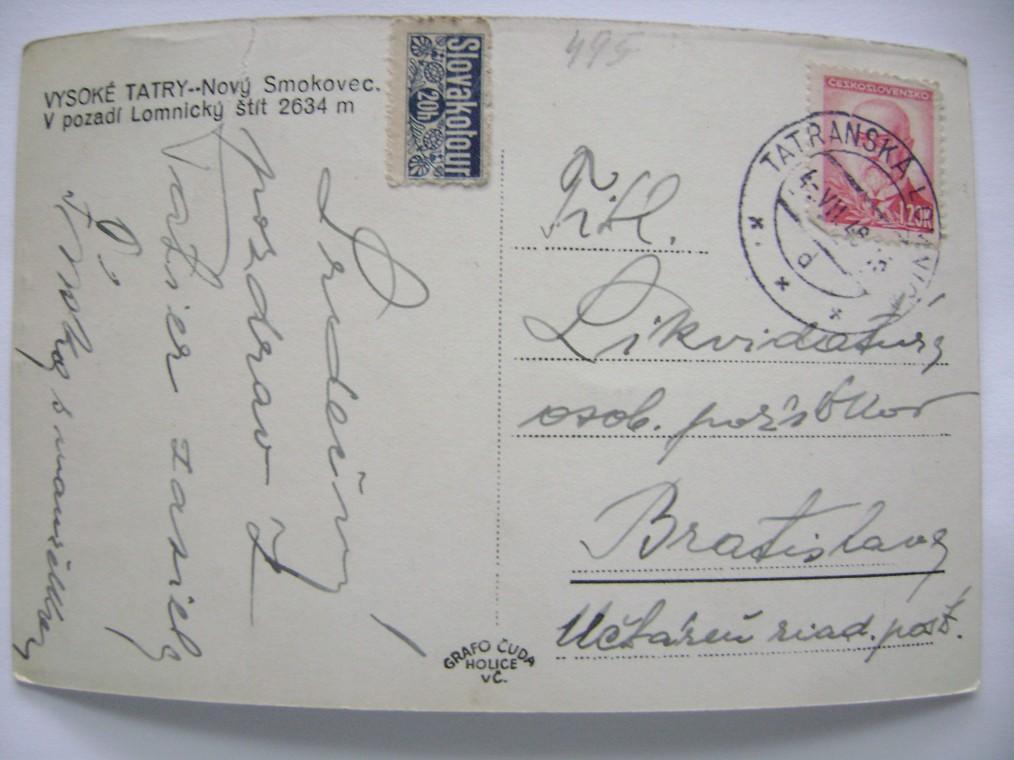 VYSOKÉ TATRY--Nový Smokovec.
V pozadí Lomnický štít 2634 m
Slovakotour
20h
495
ČESKOSLOVENSKO
1.20 K
TATRANSKÁ
Srdečný
pozdrav z
Tatier zasiela
s manželkou
Titl.
Likvidatúra
osob. pôžitkov
Bratislava
Účtáreň riad. pošt.
GRAFO ČUDA
HOLICE
VČ.